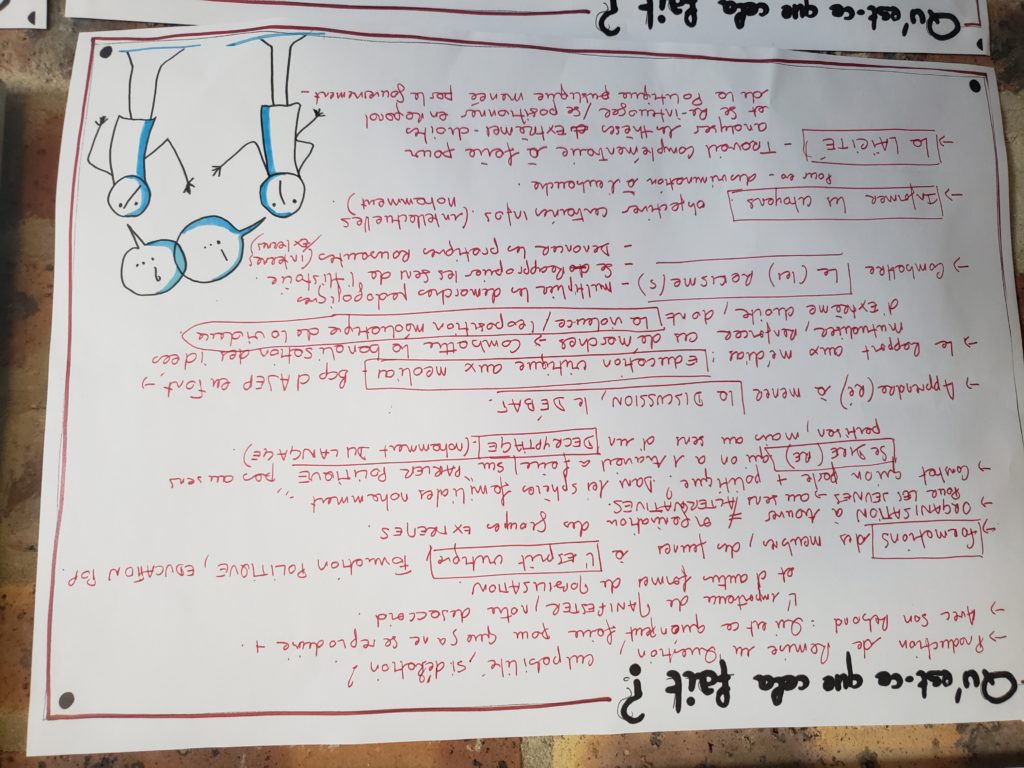 Qu'est-ce que cela fait ?
Qu'est-ce que cela fait ?
→ Production de Remise en Question, culpabilité, sidération ?
→ Avec son Rebond : Qu'est ce qu'on peut faire pour que ça ne se reproduise +
L'importance de MANIFESTER, notre désaccord
et d'autres formes de MOBILISATION
→ formations des membres, des jeunes à L'Esprit critique, Formation POLITIQUE, EDUCATION POP.
→ ORGANISATION à trouver ≠ organisation des groupes EXTRÊMES.
POUR LES JEUNES → au sens ALTERNATIVES
→ Constat qu'on parle + politique : Dans les sphères familiales notamment
SE DIRE (RE) qu'on a 1 travail à faire sur PARLER POLITIQUE pas au sens
partisan, mais au sens d'un DECRYPTAGE (notamment DU LANGAGE)
→ Apprendre (Ré) à mener LA DISCUSSION, le DÉBAT.
→ le Rapport aux médias : Education critique aux medias Bcp d'AJEP en font, →
mutualiser, Renforcer ces démarches → Combattre la banalisation des idées
d'Extrême droite, dont la violence / l'exposition médiatique de la violence.
→ Combattre le (les) Racisme(s) - multiplier les démarches pédagogiques
se Réapproprier les sens de l'Histoire
- Dénoncer les pratiques Racisantes (internes/externes)
→ Informer les citoyens. objectiver certaines infos. (intellectuelles notamment).
Pour ex - discrimination à l'embauche.
→ LA LAÏCITÉ - Travail complémentaire à faire pour
analyser les thèses d'Extrêmes-droites
et se Ré-interroger / se positionner en égard
de la Politique publique menée par le gouvernement -